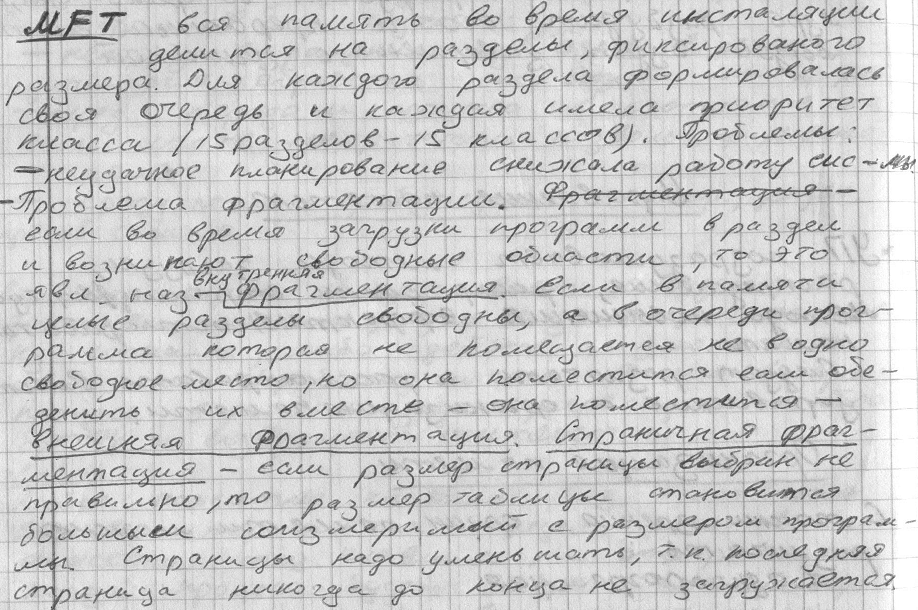 MFT вся память во время инсталяции
делится на разделы, фиксированого
размера. Для каждого раздела формировалась
своя очередь и каждая имела приоритет
класса (15 разделов - 15 классов). Проблемы:
- неудачное планирование снижала работу сис-мы.
- Проблема фрагментации. Фрагментация -
если во время загрузки программ в раздел
и возникают свободные области, то это
явл. наз. внутренняя фрагментация. Если в памяти
целые разделы свободны, а в очереди прог-
рамма которая не помещается не в одно
свободное место, но она поместится если обе-
денить их вместе - она поместится -
внешняя фрагментация. Страничная фраг-
ментация - если размер страницы выбран не
правильно, то размер таблицы становится
большым соизмеримый с размером програм-
мы. Страницы надо уменьшать, т.к. последняя
страница никогда до конца не загружается.